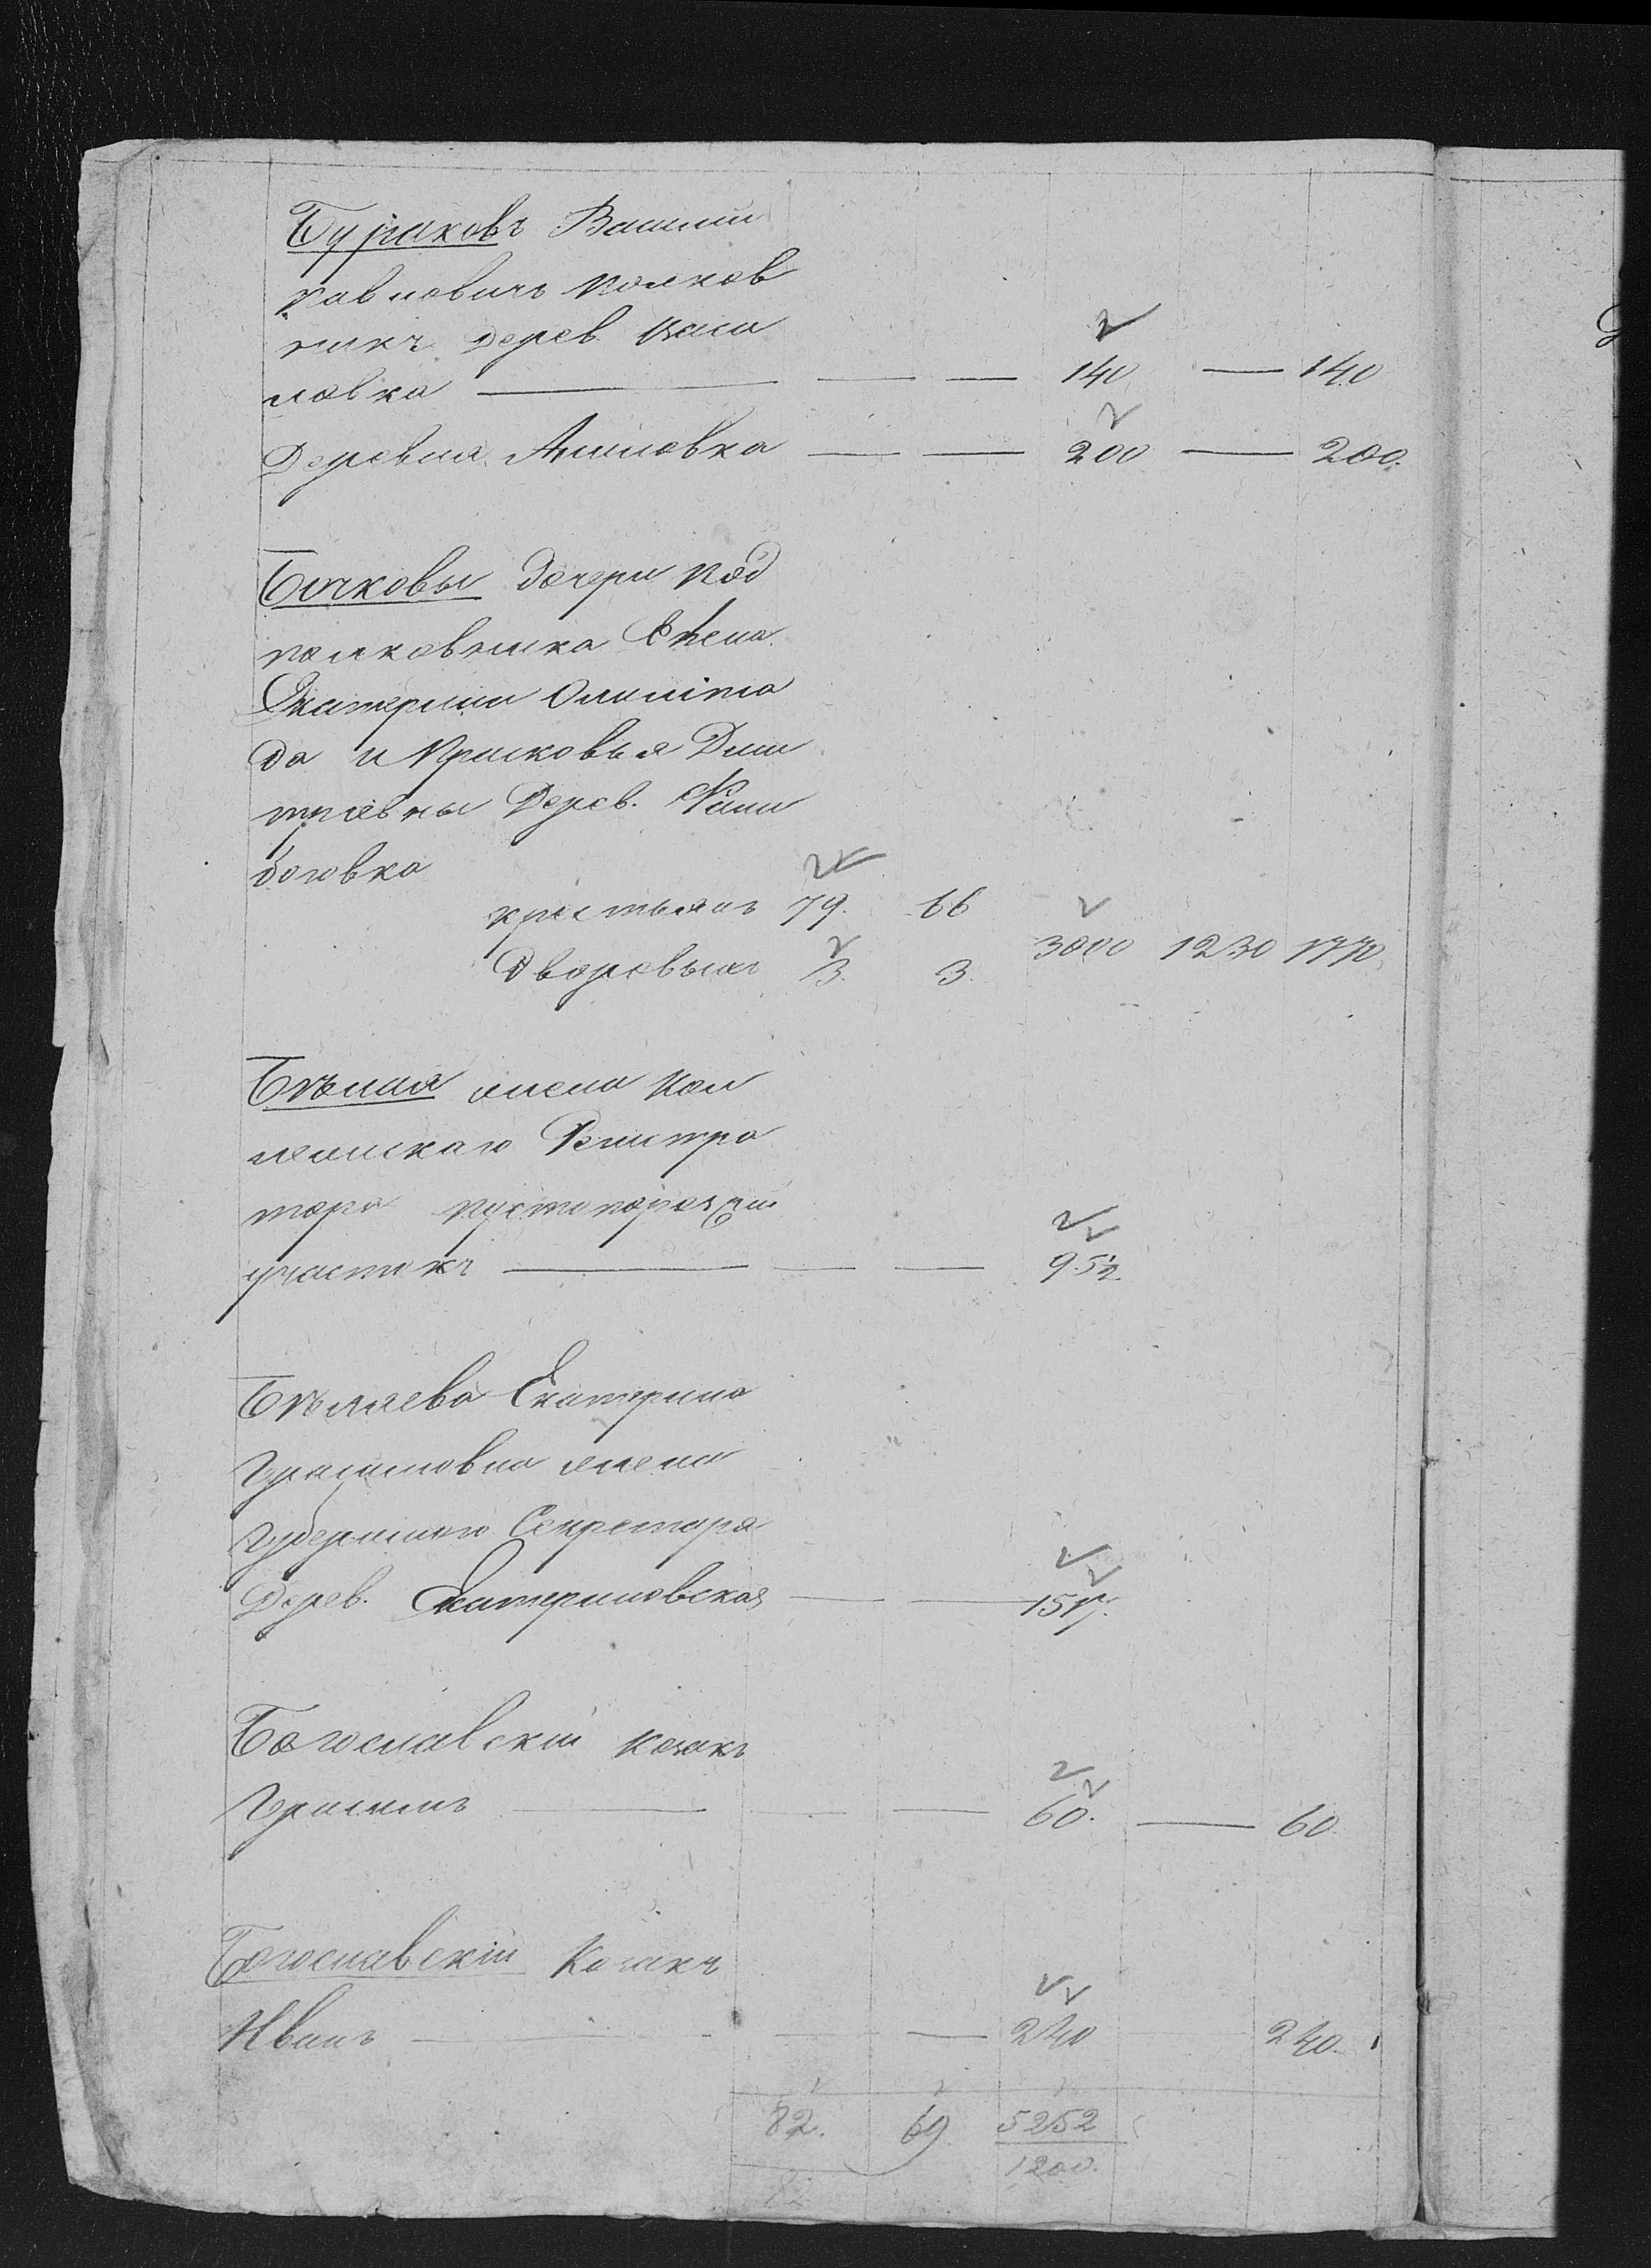 Бураковъ Василій
Павловичъ Полков
никъ Дерев.
ловка — — — 140 — 140
Деревня Аниновка — — 200 — 200.
Бычковы дочери под
полковника Елена
Екатерина Олимпіа
да и Прасковья Дми
тріевны Дерев.
боловка
крестьянъ 79. 66
3000 1230 1770
Дворовыхъ 3. 3.
Бѣлая жена Кол
лежскаго Регистра
тора пустопорожній
участокъ — — — 952
Бѣляева Екатерина
Герасимовна жена
Губернскаго Секретаря
Дерев. Екатериновская — — 1517.
Богославскій козакъ
Герасимъ — — — 60. — 60
Богославскій Козакъ
Иванъ — — — 240 240.
82. 69 5252
1200.